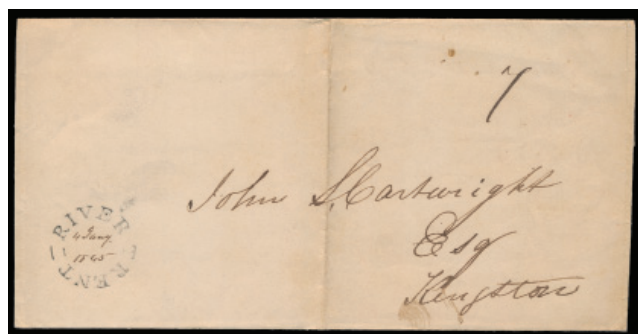 7
John S. Cartwright
Esq
Kingston
RIVER TRENT
4 Jany
1845